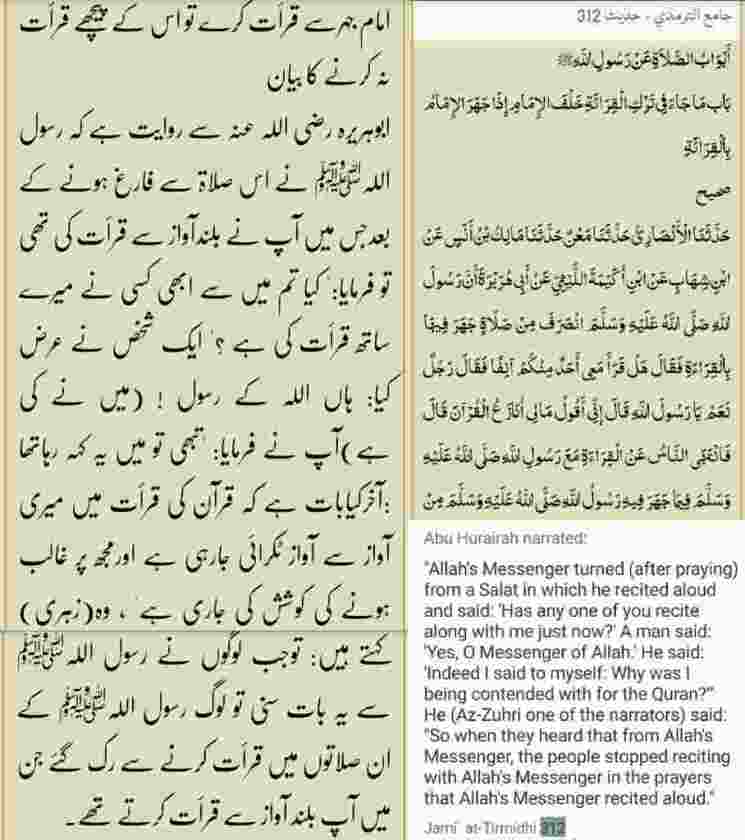 امام جہر سے قرأت کرے تو اس کے پیچھے قرأت
نہ کرنے کا بیان
ابوہریرہ رضی اللہ عنہ سے روایت ہے کہ رسول
اللہ ﷺ نے اس صلاۃ سے فارغ ہونے کے
بعد جس میں آپ نے بلند آواز سے قرأت کی تھی
تو فرمایا: 'کیا تم میں سے ابھی کسی نے میرے
ساتھ قرأت کی ہے ؟' ایک شخص نے عرض
کیا: ہاں اللہ کے رسول ! (میں نے کی
ہے) آپ نے فرمایا: 'تبھی تو میں یہ کہہ رہا تھا
: آخر کیا بات ہے کہ قرآن کی قرأت میں میری
آواز سے آواز ٹکرائی جا رہی ہے اور مجھ پر غالب
ہونے کی کوشش کی جاری ہے' ، وہ (زہری)
کہتے ہیں: تو جب لوگوں نے رسول اللہ ﷺ
سے یہ بات سنی تو لوگ رسول اللہ ﷺ کے
ان صلاتوں میں قرأت کرنے سے رک گئے جن
میں آپ بلند آواز سے قرأت کرتے تھے۔
جامع الترمذي - حدیث 312
أَبْوَابُ الصَّلَاةِ عَنْ رَسُولِ اللهِ ﷺ
بَاب مَا جَاءَ فِي تَرْكِ الْقِرَائَةِ خَلْفَ الإِمَامِ إِذَا جَهَرَ الإِمَامُ
بِالْقِرَائَةِ
صحیح
حَدَّثَنَا الْأَنْصَارِيُّ حَدَّثَنَا مَعْنٌ حَدَّثَنَا مَالِكُ بْنُ أَنَسٍ عَنْ
ابْنِ شِهَابٍ عَنْ ابْنِ أُكَيْمَةَ اللَّيْثِيِّ عَنْ أَبِي هُرَيْرَةَ أَنَّ رَسُولَ
اللهِ صَلَّى اللهُ عَلَيْهِ وَسَلَّمَ انْصَرَفَ مِنْ صَلَاةٍ جَهَرَ فِيهَا
بِالْقِرَاءَةِ فَقَالَ هَلْ قَرَأَ مَعِي أَحَدٌ مِنْكُمْ آنِفًا فَقَالَ رَجُلٌ
نَعَمْ يَا رَسُولَ اللهِ قَالَ إِنِّي أَقُولُ مَالِي أُنَازَعُ الْقُرْآنَ قَالَ
فَانْتَهَى النَّاسُ عَنْ الْقِرَاءَةِ مَعَ رَسُولِ اللهِ صَلَّى اللهُ عَلَيْهِ
وَسَلَّمَ فِيمَا جَهَرَ فِيهِ رَسُولُ اللهِ صَلَّى اللهُ عَلَيْهِ وَسَلَّمَ مِنْ
Abu Hurairah narrated:
"Allah's Messenger turned (after praying)
from a Salat in which he recited aloud
and said: 'Has any one of you recite
along with me just now?' A man said:
'Yes, O Messenger of Allah.' He said:
'Indeed I said to myself: Why was I
being contended with for the Quran?'"
He (Az-Zuhri one of the narrators) said:
"So when they heard that from Allah's
Messenger, the people stopped reciting
with Allah's Messenger in the prayers
that Allah's Messenger recited aloud."
Jami` at-Tirmidhi 312